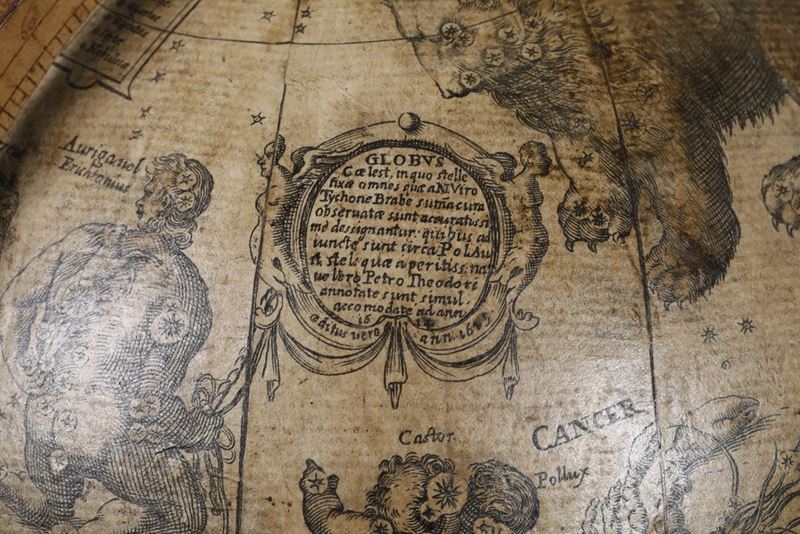 Nebulosa
Auriga vel
Erichtonius
GLOBVS
Cælest, in quo stelle
fixæ omnes quæ a N Viro
Tychone Brahe suma cura
observatæ sunt accuratissi
mè dessignantur: quibus ad
iunctæ sunt circa Pol Au
A stels quæ a peritiss: nau
Petro Theodori
annotate sunt simul.
accomodate ad ann.
æditus vero ann.
Castor
CANCER
Pollux